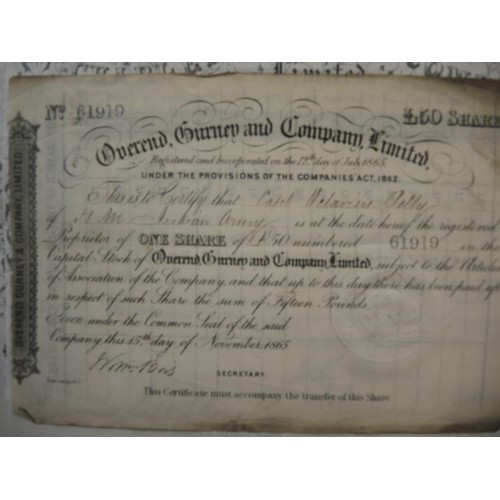 No 61919 £50 SHARE
Overend, Gurney and Company, Limited,
Registered and Incorporated on the 12th day of July 1865
UNDER THE PROVISIONS OF THE COMPANIES ACT, 1862.
This is to Certify that Capt Octavius Pelly
of H M Indian Army is at the date hereof the registered
Proprietor of ONE SHARE of £50 numbered 61919 in the
Capital Stock of Overend Gurney and Company, Limited, subject to the Articles
of Association of the Company and that up to this day there has been paid up
in respect of such Share the sum of Fifteen Pounds
Given under the Common Seal of the said
Company this 15th day of November, 1865
SECRETARY.
This Certificate must accompany the transfer of this Share.
OVEREND GURNEY & COMPANY, LIMITED.
Limited